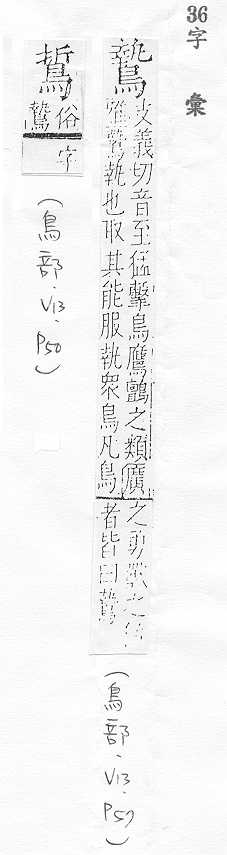 36
字彙
鷙
支義切音至猛擊鳥鷹鸇之類廣
雅鷙執也取其能服執衆鳥凡鳥
之勇獸之
者皆曰鷙
(鳥部.V13.P57)
䳿
俗鷙字
(鳥部.V13.P50)